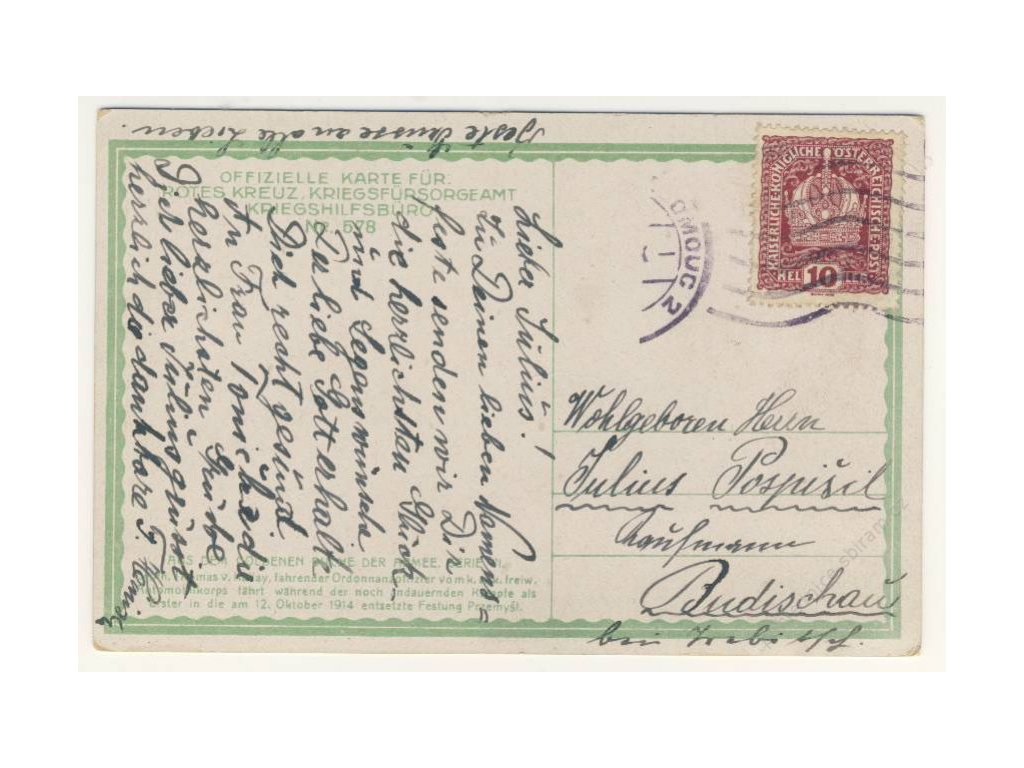 Beste Grüsse an alle Lieben.
OFFIZIELLE KARTE FÜR:
ROTES KREUZ, KRIEGSFÜRSORGEAMT
KRIEGSHILFSBÜRO
NR. 578
Lieber Julius!
Zu Deinem lieben Namens-
feste senden wir Dir
die herzlichsten Glück
und Segenswünsche
Der liebe Gott erhalte
Dich recht gesund.
Frau
herzlichsten Grüße
lieber Julius grüsst
herzlich die dankbare
AUS DER GOLDENEN BUCHE DER ARMEE, SERIE IV.
Thomas v. fahrender Ordonnanzoffizier vom k. u. k. freiw.
Automobilkorps fährt während der noch andauernden Kämpfe als
Erster in die am 12. Oktober 1914 entsetzte Festung Przemyśl.
KAISERLICHE KÖNIGLICHE ÖSTERREICHISCHE POST
HEL 10 HEL
OMOUC 2
Wohlgeboren Herrn
Julius Pospišil
Kaufmann
Budischau
bei Trebitsch.